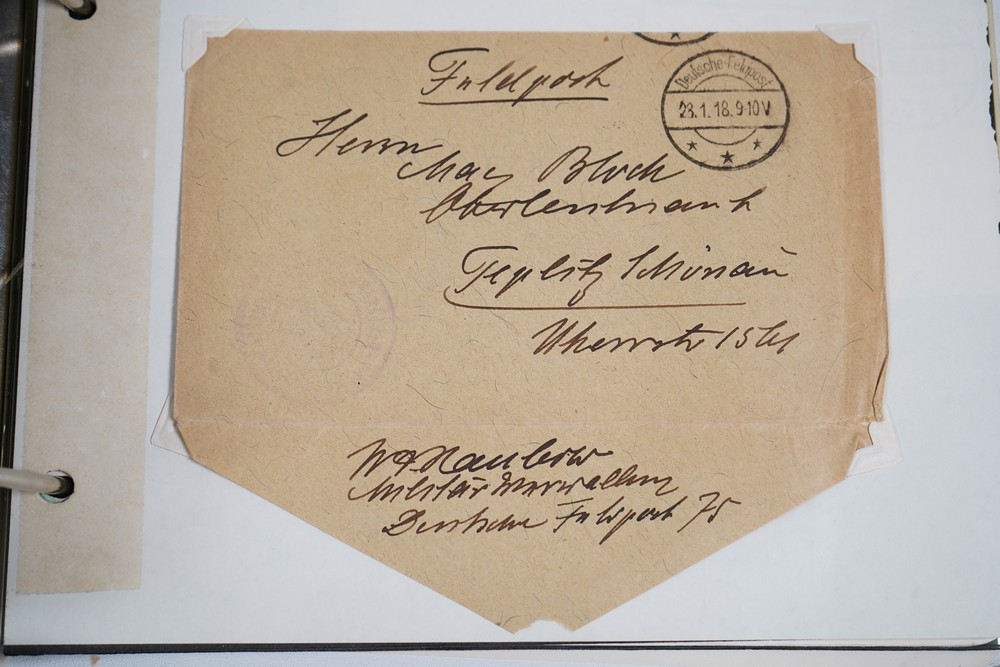 Feldpost
Deutsche Feldpost
28.1.18.9-10V
Herrn
Max Bloch
Oberleutnant
Teplitz Schönau
Militärverwaltung
Deutsche Feldpost 75